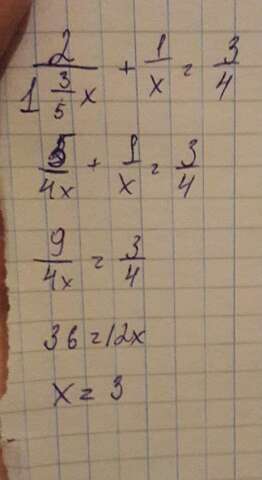 2/(1 3/5 x) + 1/x = 3/4
5/4x + 1/x = 3/4
9/4x = 3/4
36 = 12x
x = 3